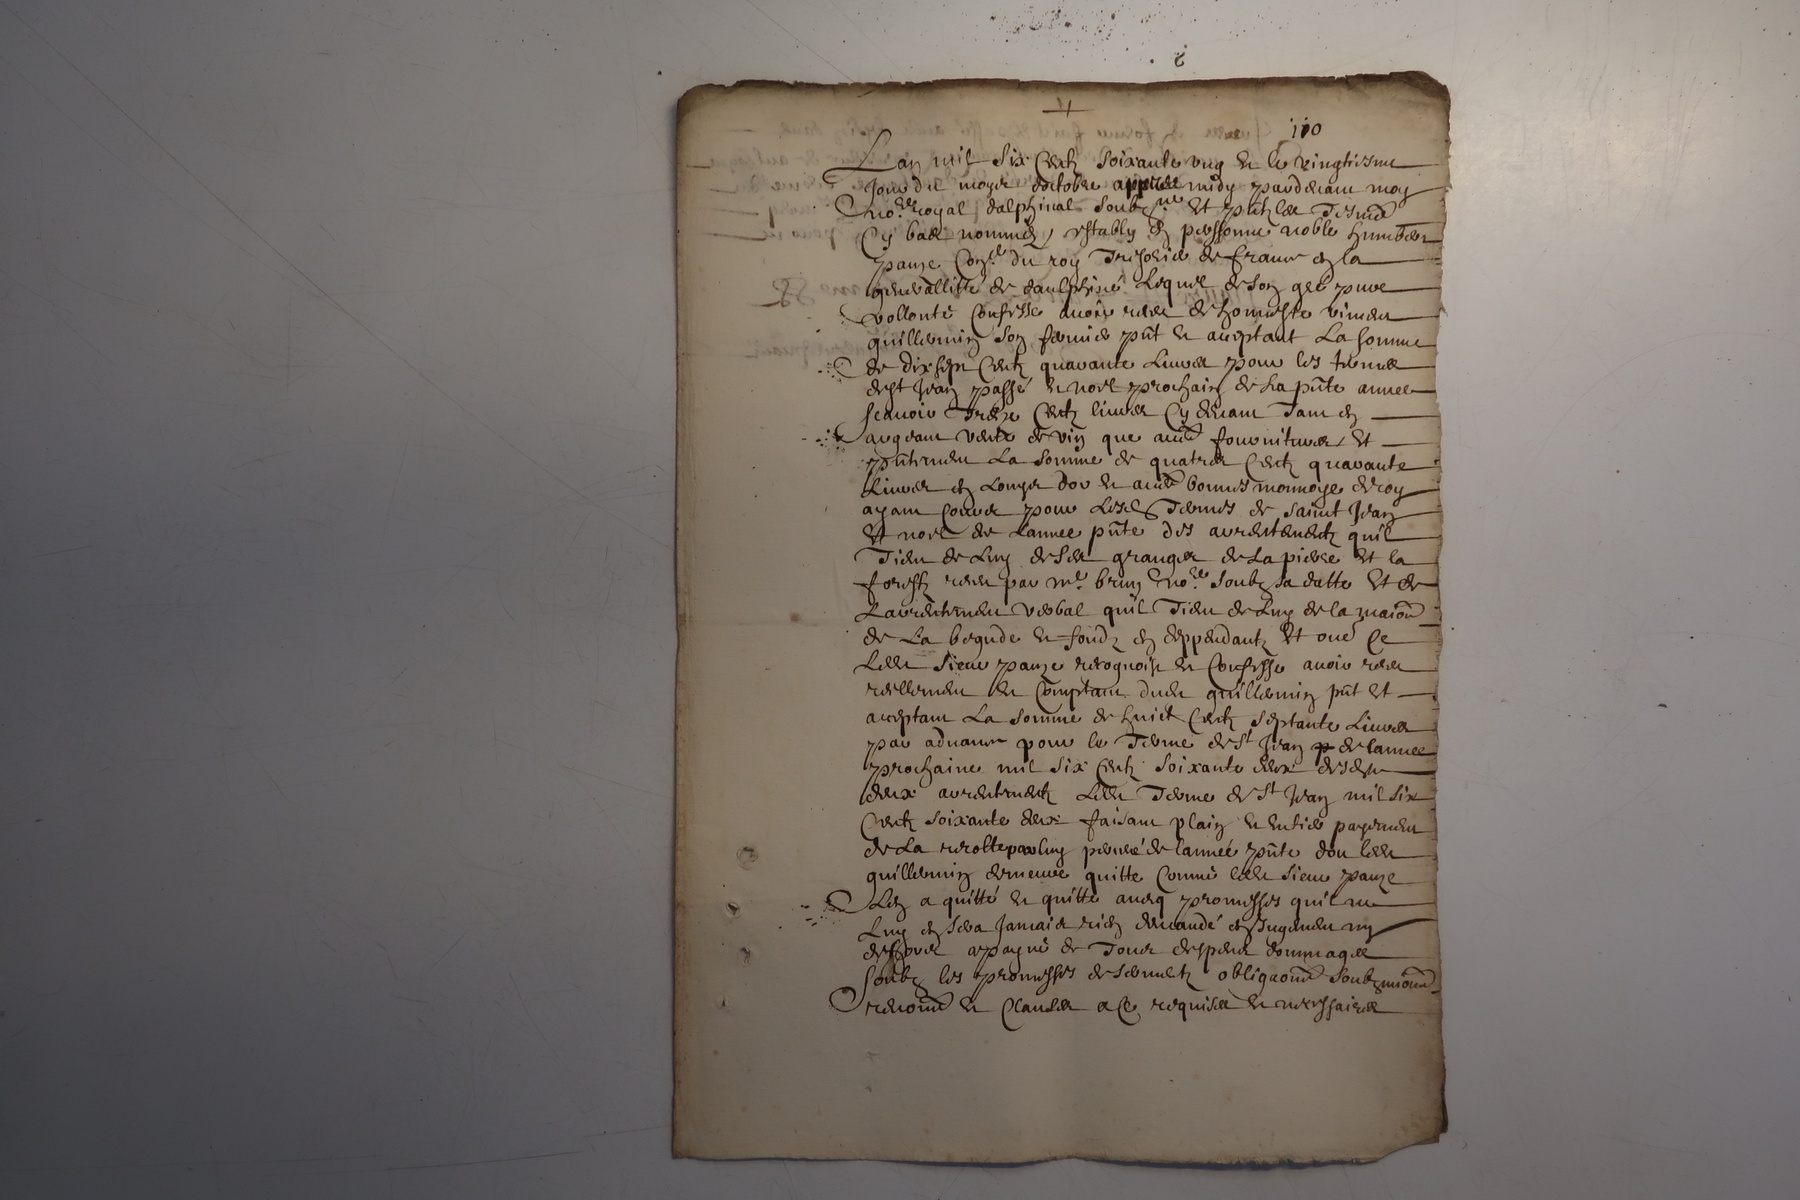 110
Lan mil six centz soixante ung et le vingtiesme
Jour du moys doctobre appres midy pardevant moy
no.re royal dalphinal soubz.ne et pntz les tesmo
Cy bas nommes, estably en personne noble humbert
panze Con.er du roy Tresorier de france en la
generallitté de daulphiné Lequel de son gré pure
vollonté Confesse avoir receu de honneste vincent
guillermin son fermier pnt et aceptant La somme
de dix sept Centz quarante Livres pour les termes
de st Jean passé et noel prochain de la pnte annee
scavoir Treze Centz livres Cy devant Tant en
argeant vente de vin que aues fournitures, Et
pntement La somme de quatre Centz quarante
Livres en Louys dor et aues bonnes monnoye de roy
ayant Cours pour Lesd Termes de saint Jean
Et noel de Lannee pnte des arrentementz quil
Tient de Luy de ses granges de La pierre Et la
forestz receu par me brun no.re soubz sa datte Et de
Larrentement verbal quil Tient de Luy de la maison
de La begude et fondz en deppendantz Et oue Ce
Ledt sieur panze recognoist et Confesse avoir receu
reellement et Comptant dudt guillermin pnt Et
aceptant La somme de huict Centz septante Livres
par advance pour le Terme de st Jean p de lannee
prochaine mil six Centz soixante deux desdts
deux arrentementz Ledt Terme de st Jean mil six
Centz soixante deux faisant plain et entier payement
de La recolte par luy percue de lannee pnte dont ledt
guillermin demeure quitte Comme ledt sieur panze
Len a quitté et quitte aveq promesses quil ne
Luy en sera Jamais rien demandé en Jugement ny
dehors a payne de Tous despens dommages
soubz les promesses de sermentz obligaons soubzmions
renons et Clauses a Ce requises et necessaires